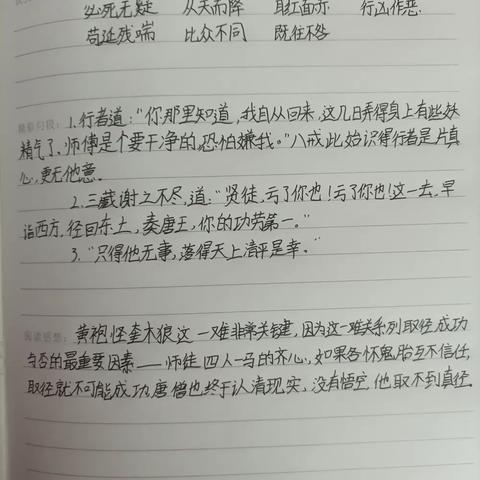 必死无疑 从天而降 耳红面赤 行凶作恶
苟延残喘 比众不同 既往不咎
精彩句段：1.行者道：“你那里知道，我自从回来，这几日弄得身上有些妖
精气了。师傅是个要干净的，恐怕嫌我。”八戒此始识得行者是片真
心，更无他意。
2.三藏谢之不尽，道：“贤徒，亏了你也！亏了你也！这一去，早
诣西方，径回东土，奏唐王，你的功劳第一。”
3.“只得他无事，落得天上清平是幸。”
阅读感想：黄袍怪奎木狼这一难非常关键，因为这一难关系到取经成功
与否的最重要因素——师徒四人一马的齐心，如果各怀鬼胎互不信任，
取经就不可能成功，唐僧也终于认清现实，没有悟空他取不到真经。